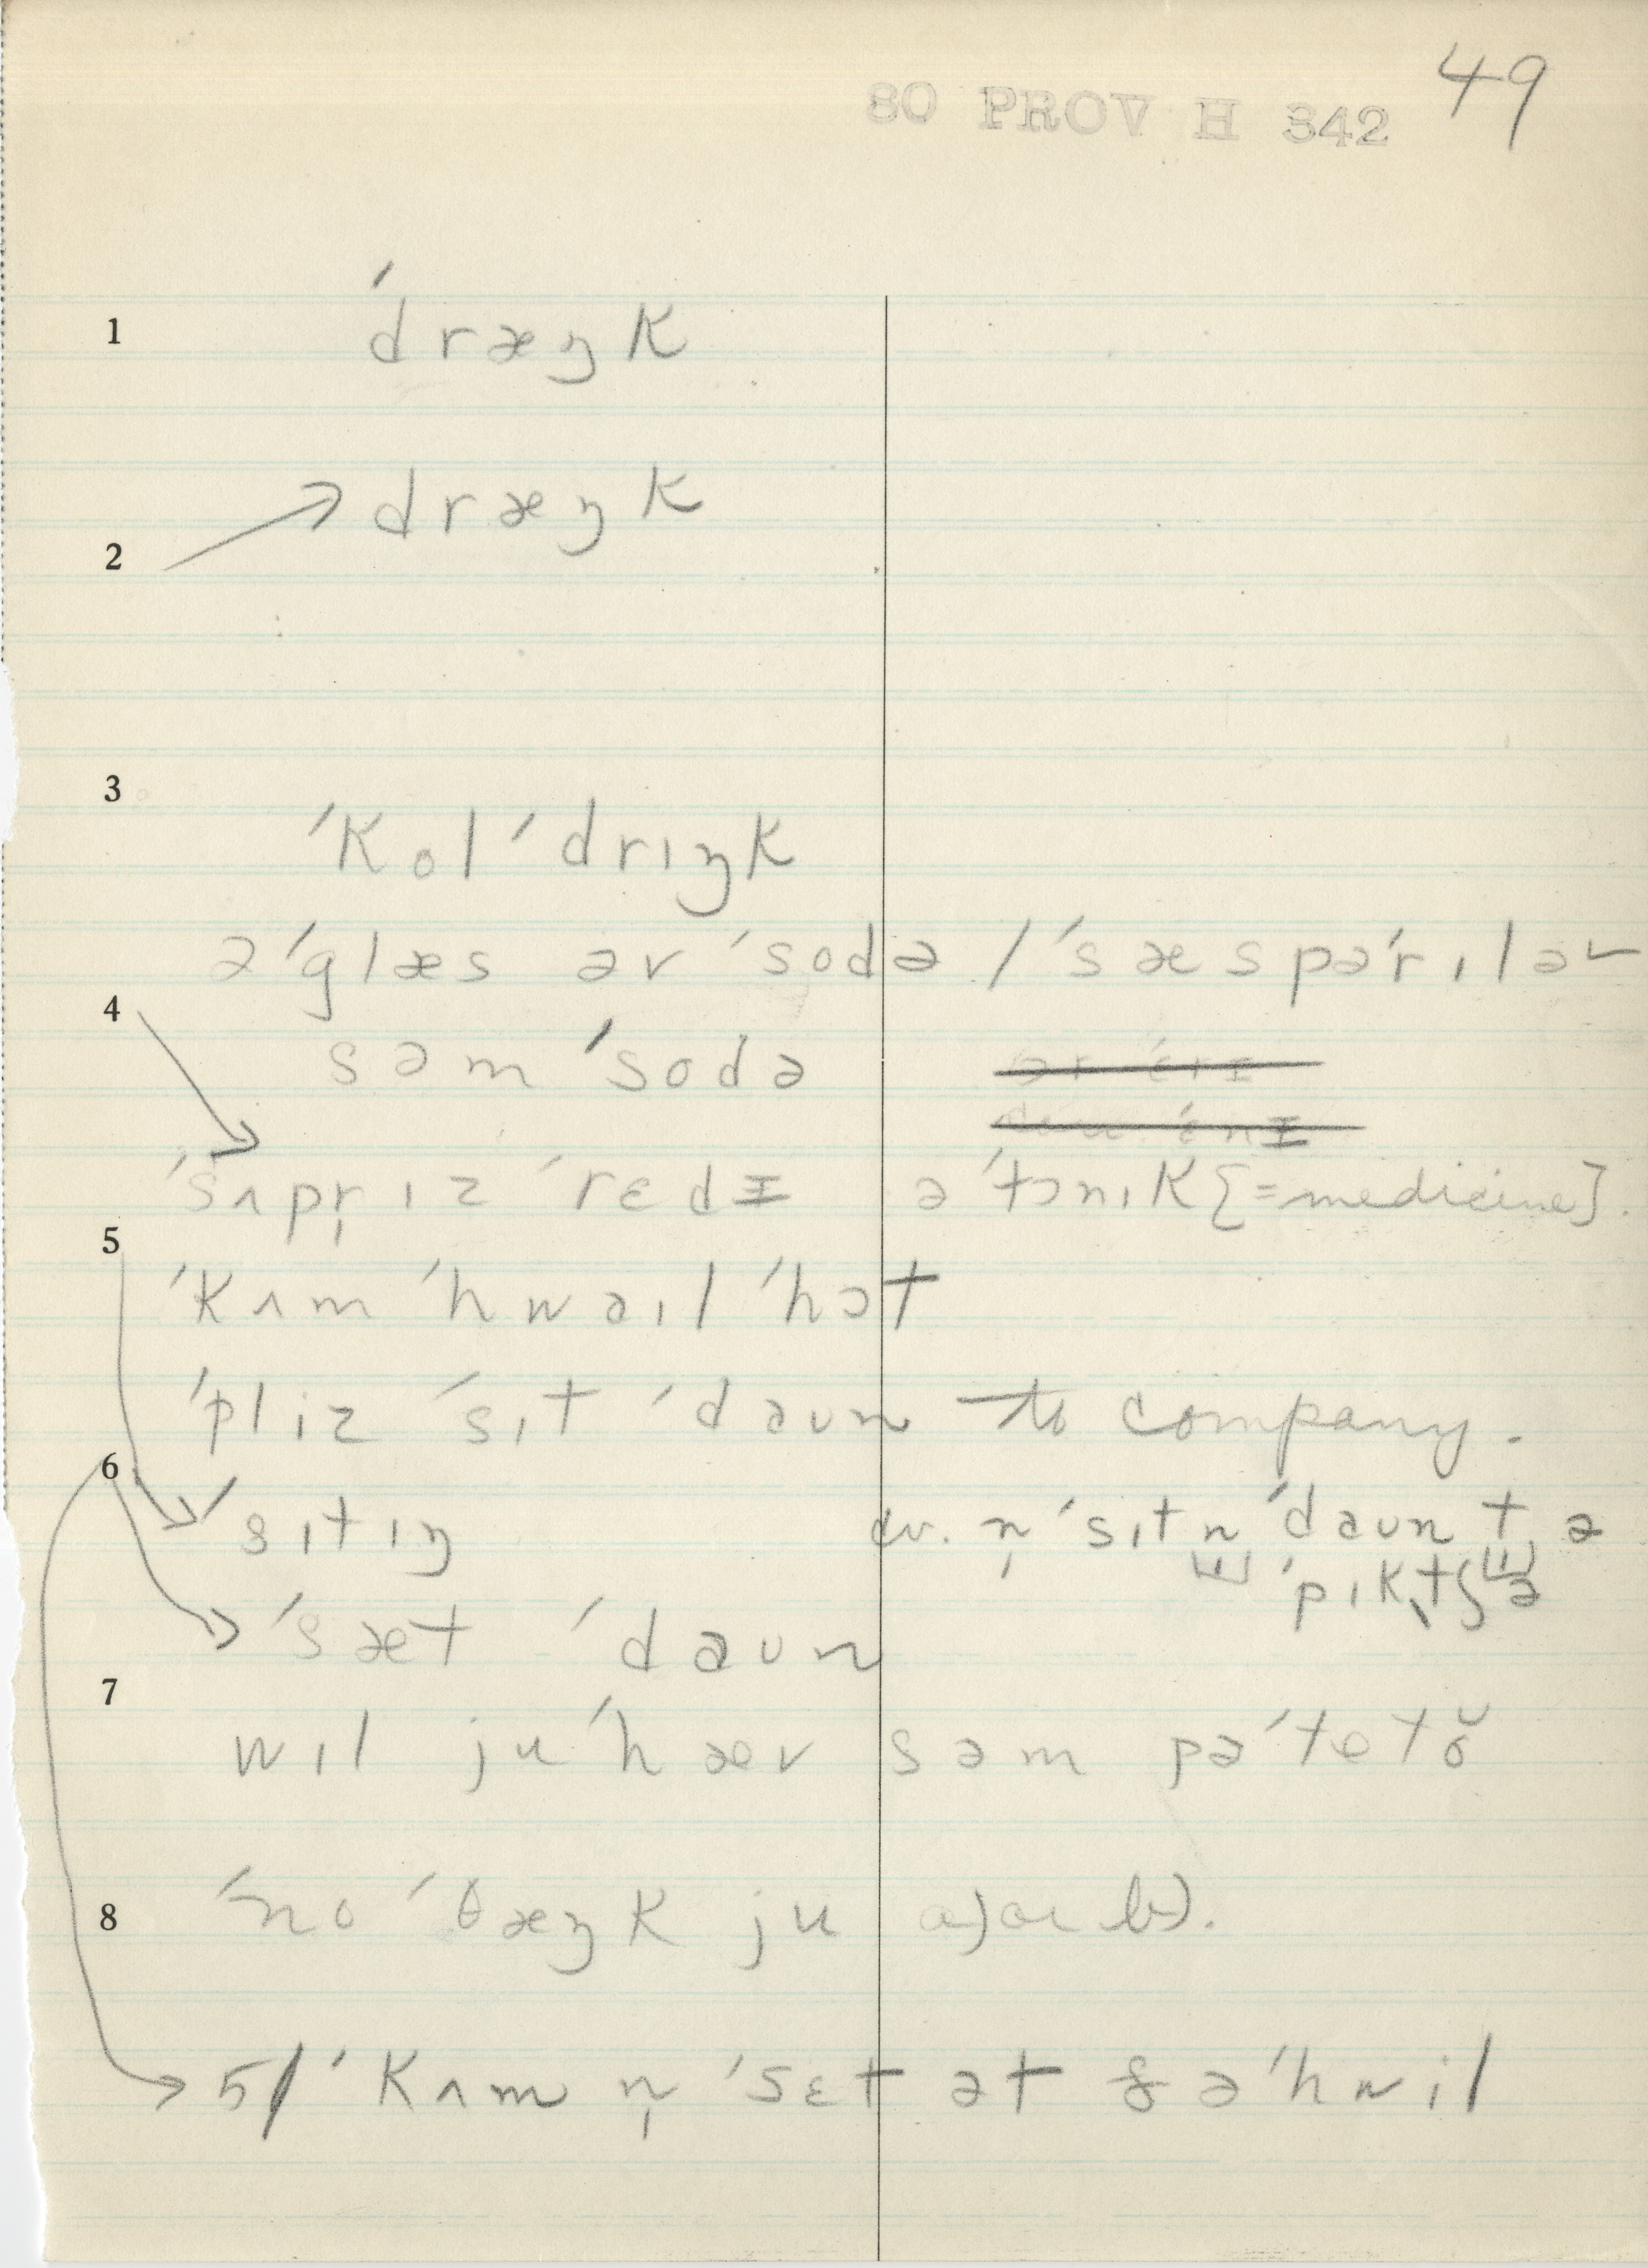 80 PROV H 342 49
1 ˈdræŋk
2 → dræŋk
3
ˈkol ˈdrɪŋk
ə ˈglæs əv ˈsodə / ˈsæspəˈrɪlə
4
səm ˈsodə
ˈsʌpr̩ ɪz ˈrɛdɪ ə ˈtɔnɪk [=medicine].
5
ˈkʌm ˈhwaɪl ˈhɔt
ˈpliz ˈsɪt ˈdaʊn to company.
6
ˈsɪtɪŋ cv. n̩ ˈsɪtn ˈdaʊn t ə
ˈpɪktʃə
ˈsæt ˈdaʊn
7
wɪl ju ˈhæv səm pəˈteto
8 ˈno ˈθæŋk ju a) or b).
5/ ˈkʌm n̩ ˈsɛt ət ðə ˈhwil